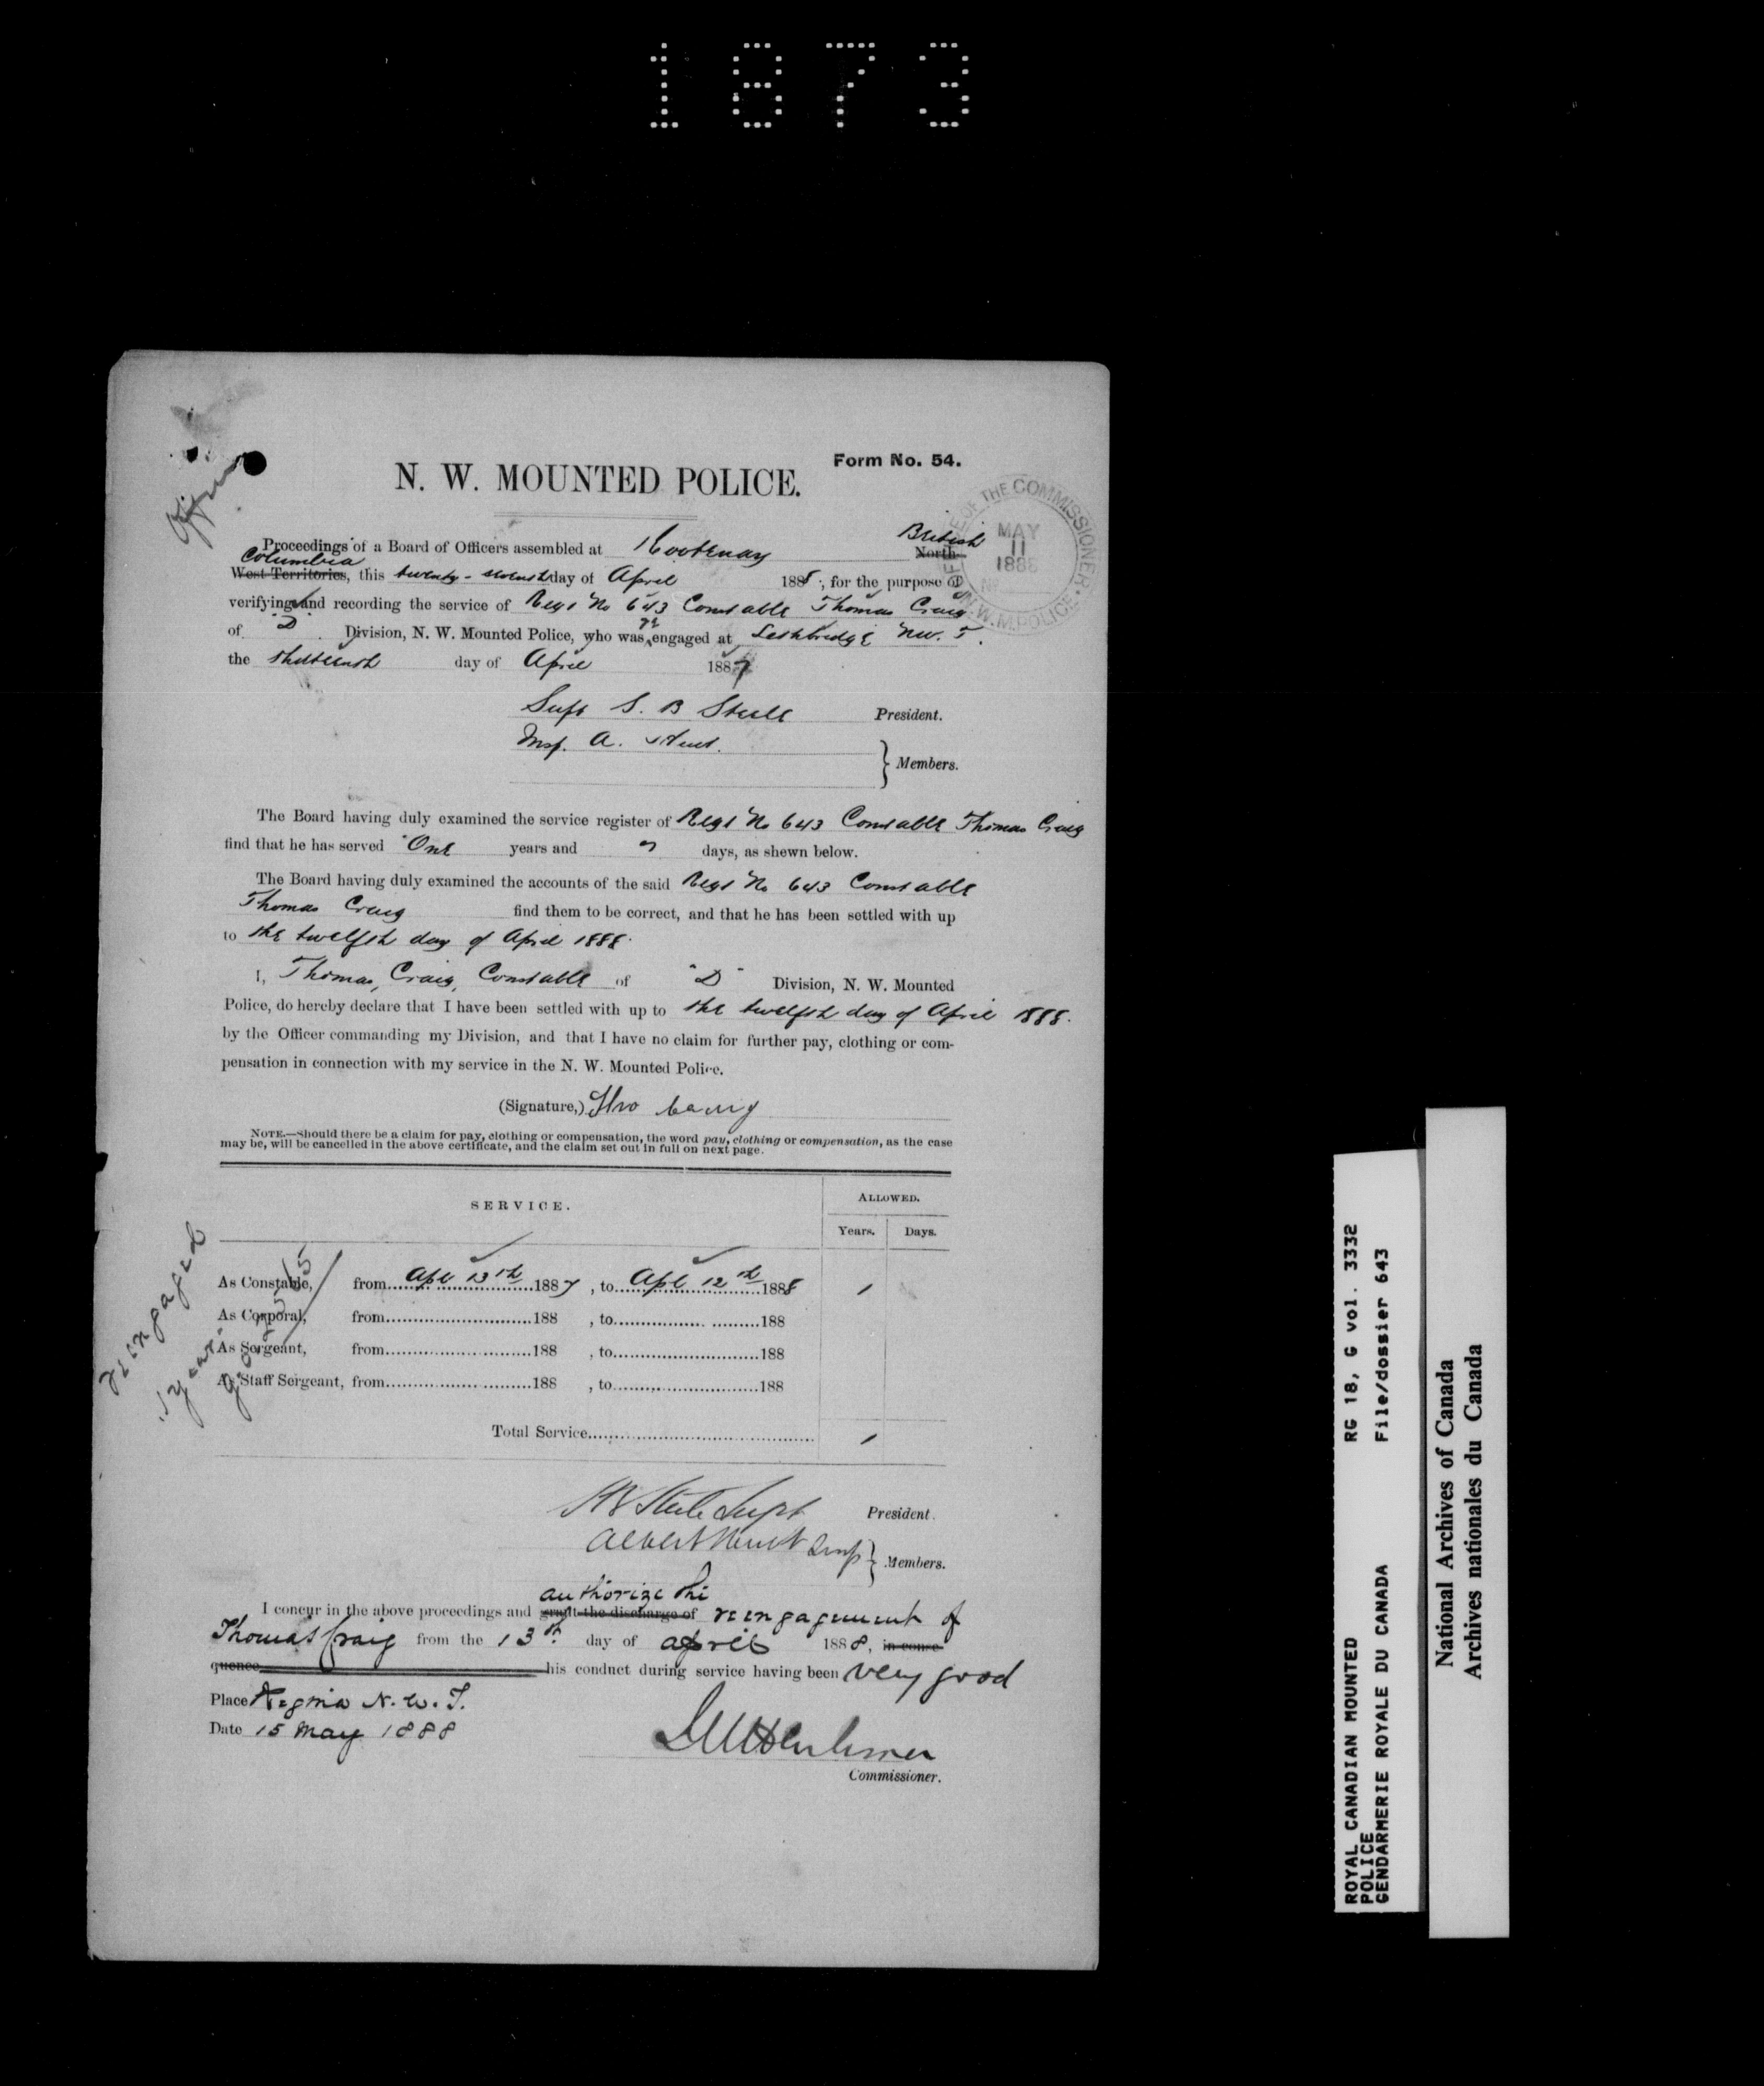 1873
Form No. 54.
N. W. MOUNTED POLICE.
OFFICE OF THE COMMISSIONER
MAY
11
1888
N.W.M. POLICE
Proceedings of a Board of Officers assembled at Kootenay British North
Columbia
West Territories, this twenty-seventh day of April 1888, for the purpose of
verifying and recording the service of Regt No 643 Constable Thomas Craig
of "D" Division, N. W. Mounted Police, who was re engaged at Lethbridge N.W.T.
the thirteenth day of April 1887
Supt S. B Steele President.
Insp. A. Huot.
Members.
The Board having duly examined the service register of Regt No 643 Constable Thomas Craig
find that he has served One years and days, as shewn below.
The Board having duly examined the accounts of the said Regt No 643 Constable
Thomas Craig find them to be correct, and that he has been settled with up
to the twelfth day of April 1888.
I, Thomas Craig, Constable of "D" Division, N. W. Mounted
Police, do hereby declare that I have been settled with up to the twelfth day of April 1888.
by the Officer commanding my Division, and that I have no claim for further pay, clothing or com-
pensation in connection with my service in the N. W. Mounted Police.
(Signature,) Tho Craig
NOTE.—Should there be a claim for pay, clothing or compensation, the word pay, clothing or compensation, as the case
may be, will be cancelled in the above certificate, and the claim set out in full on next page.
SERVICE.
ALLOWED.
Years. Days.
As Constable, from Apl 13th 1887, to Apl 12th 1888 1
As Corporal, from 188 , to 188
As Sergeant, from 188 , to 188
As Staff Sergeant, from 188 , to 188
Total Service 1
reengaged
1 year
SB Steele Supt President.
Albert Huot Insp Members.
authorize the
I concur in the above proceedings and grant the discharge of reengagement of
Thomas Craig from the 13th day of April 1888, in conse-
quence his conduct during service having been very good
Place Regina N.W.T.
Date 15 May 1888
LW Herchmer
Commissioner.
ROYAL CANADIAN MOUNTED RG 18, G vol. 3332
POLICE
GENDARMERIE ROYALE DU CANADA File/dossier 643
National Archives of Canada
Archives nationales du Canada